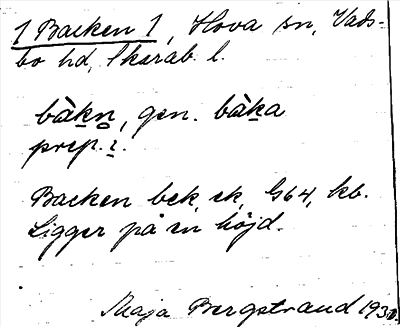 1 Backen 1, Hova sn, Vads-
bo hd, Skarab. l.
bàkn̥, gen. bàka
prep. i.
Backen bek, ek, G64, kb.
Ligger på en höjd.
Maja Bergstrand 193